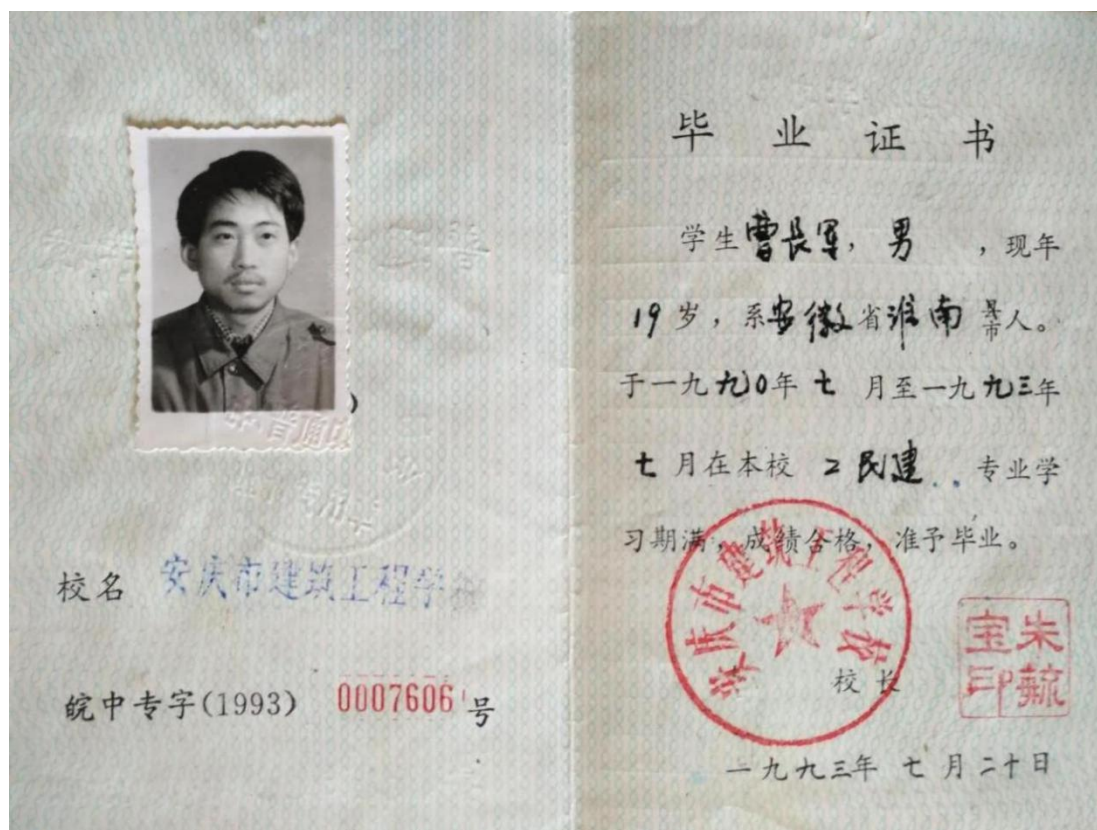 校名 安庆市建筑工程学校
皖中专字(1993) 0007606 号
毕业证书
学生曹长军，男 ，现年
19岁，系安徽省淮南县市人。
于一九九0年七月至一九九三年
七月在本校 工民建 专业学
习期满，成绩合格，准予毕业。
安庆市建筑工程学校
校长
朱毓宝印
一九九三年七月二十日